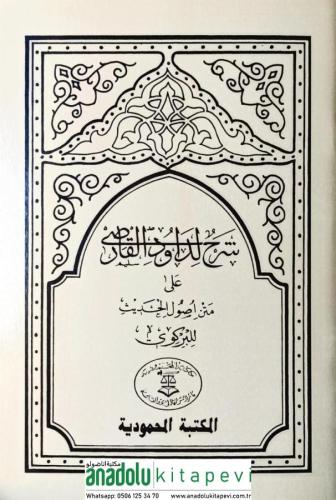 شرح لداود القارصي
على
متن أصول الحديث
للبركوي
المكتبة المحمودية
مكتبة اناضولو
anadolu kitapevi
Whatsapp: 0506 125 34 70 www.anadolukitapevi.com.tr